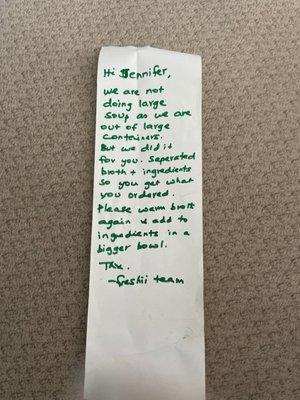 Hi Jennifer,
we are not
doing large
soup as we are
out of large
containers.
But we did it
for you. Seperated
broth + ingredients
so you get what
you ordered.
Please warm broth
again & add to
ingredients in a
bigger bowl.
Thx.
-freshii team